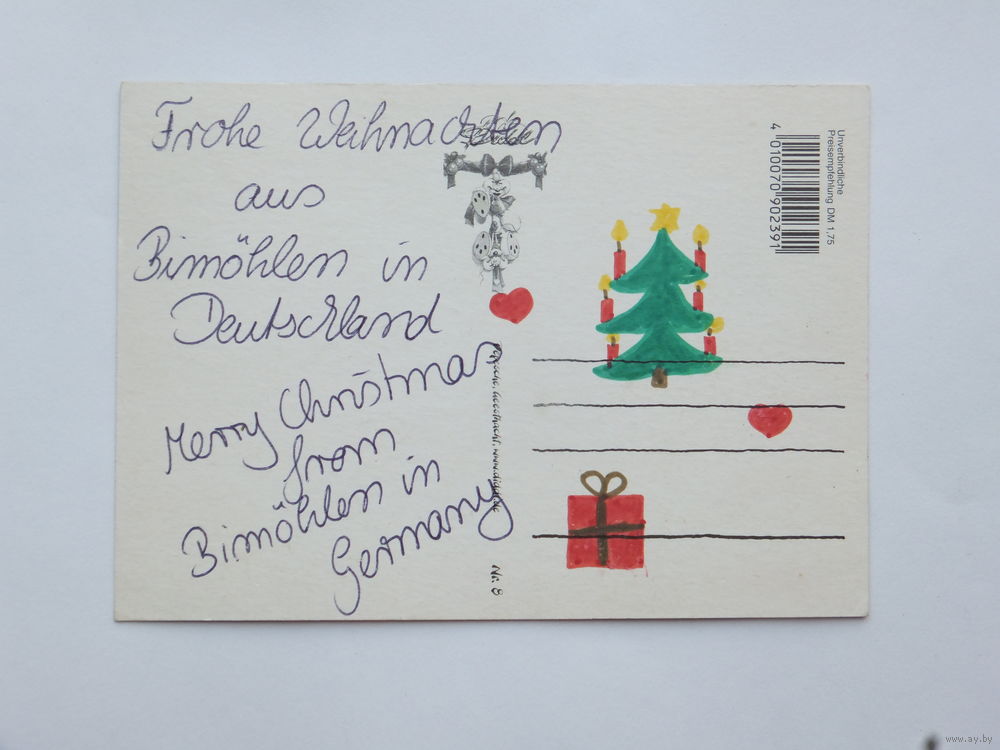 Frohe Weihnachten
aus
Bimöhlen in
Deutschland
Merry Christmas
from
Bimöhlen in
Germany
Nr. 8
Unverbindliche
Preisempfehlung DM 1,75
4 010070 902391
www.ay.by